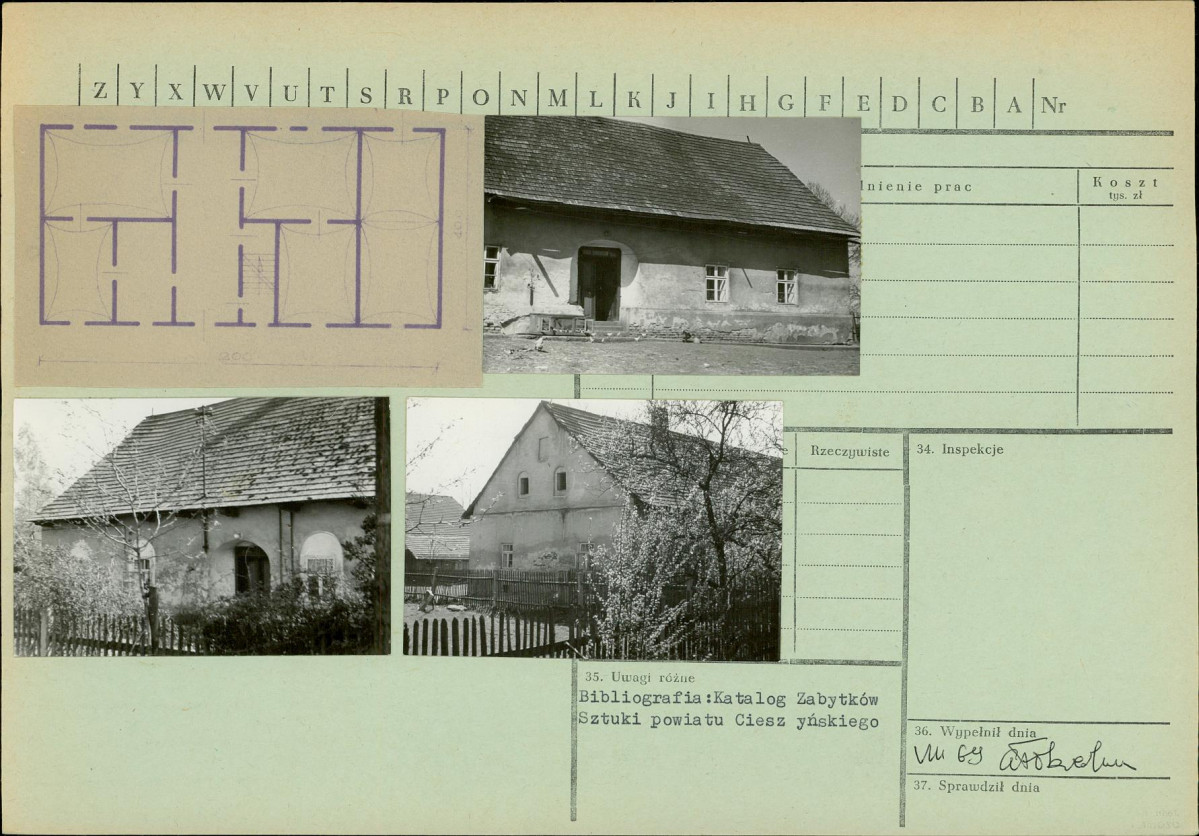 Z Y X W V U T S R P O N M L K J I H G F E D C B A Nr
łnienie prac
Koszt
tys. zł
200
Rzeczywiste
34. Inspekcje
35. Uwagi różne
Bibliografia:Katalog Zabytków
Sztuki powiatu Ciesz yńskiego
36. Wypełnił dnia
VIII 69
37. Sprawdził dnia